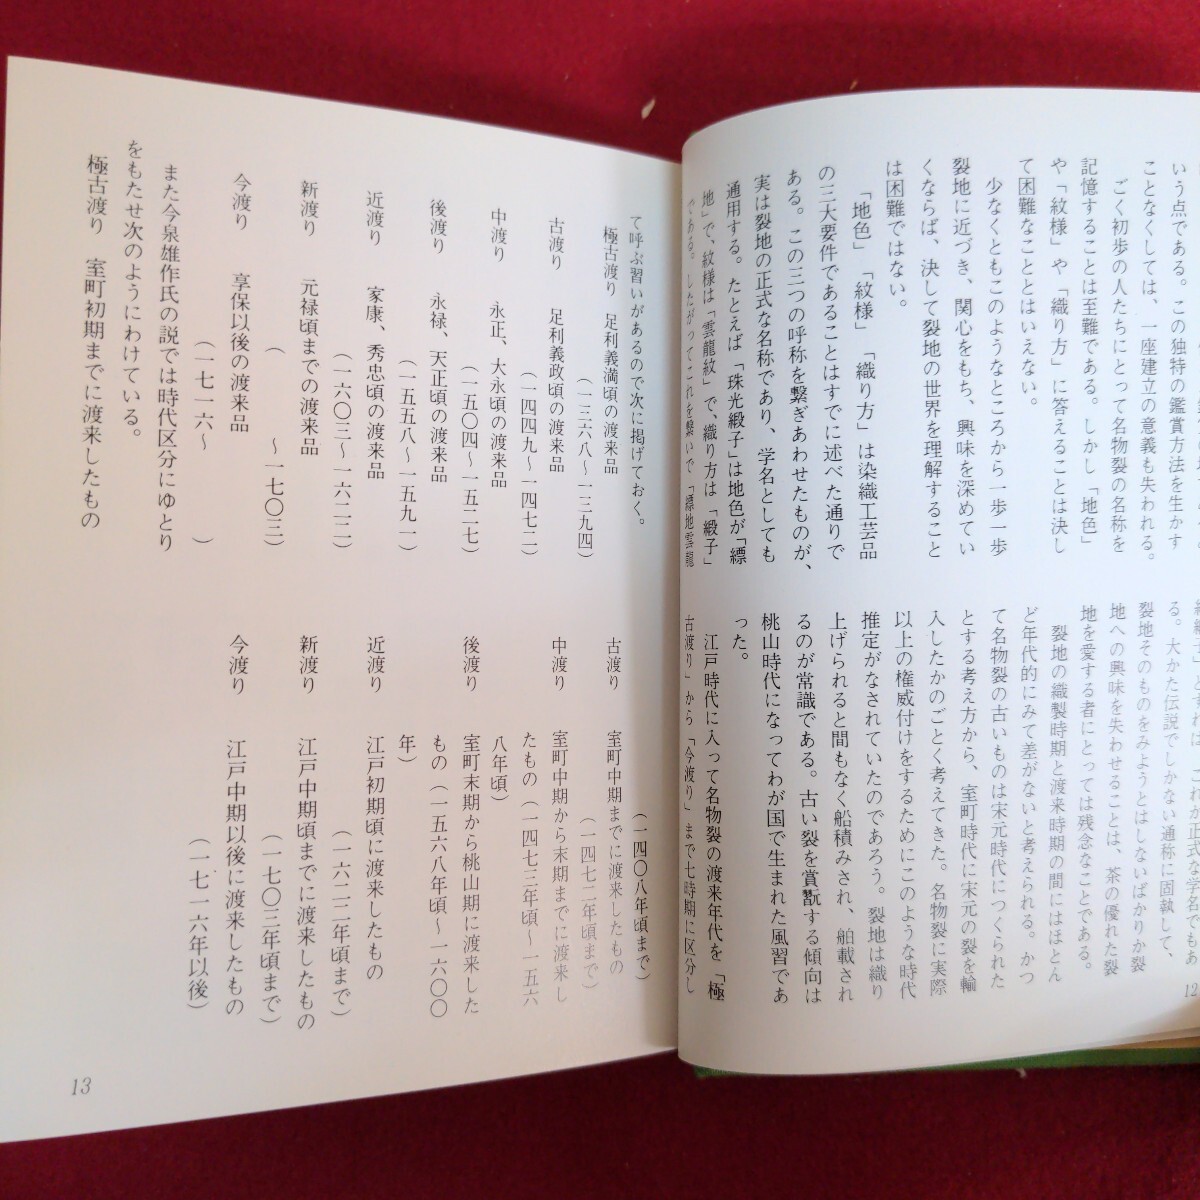 いう点である。この独特の鑑賞方法を生かす
ことなくしては、一座建立の意義も失われる。
ごく初歩の人たちにとって名物裂の名称を
記憶することは至難である。しかし「地色」
や「紋様」や「織り方」に答えることは決し
て困難なこととはいえない。
少なくともこのようなところから一歩一歩
裂地に近づき、関心をもち、興味を深めてい
くならば、決して裂地の世界を理解すること
は困難ではない。
「地色」「紋様」「織り方」は染織工芸品
の三大要件であることはすでに述べた通りで
ある。この三つの呼称を繋ぎあわせたものが、
実は裂地の正式な名称であり、学名としても
通用する。たとえば「珠光緞子」は地色が「縹
地」で、紋様は「雲龍紋」で、織り方は「緞子」
である。したがってこれを繋いで「縹地雲龍
る。大かた伝説でしかない通称に固執して、
裂地そのものをみようとはしないばかりか裂
地への興味を失わせることは、茶の優れた裂
地を愛する者にとっては残念なことである。
裂地の織製時期と渡来時期の間にはほとん
ど年代的にみて差がないと考えられる。かつ
て名物裂の古いものは宋元時代につくられた
とする考え方から、室町時代に宋元の裂を輸
入したかのごとく考えてきた。名物裂に実際
以上の権威付けをするためにこのような時代
推定がなされていたのであろう。裂地は織り
上げられると間もなく船積みされ、舶載され
るのが常識である。古い裂を賞翫する傾向は
桃山時代になってわが国で生まれた風習であ
った。
江戸時代に入って名物裂の渡来年代を「極
古渡り」から「今渡り」まで七時期に区分し
12
て呼ぶ習いがあるので次に掲げておく。
極古渡り 足利義満頃の渡来品
(一三六八〜一三九四)
古渡り 足利義政頃の渡来品
(一四四九〜一四七二)
中渡り 永正、大永頃の渡来品
(一五〇四〜一五二七)
後渡り 永禄、天正頃の渡来品
(一五五八〜一五九一)
近渡り 家康、秀忠頃の渡来品
(一六〇三〜一六二二)
新渡り 元禄頃までの渡来品
( 〜一七〇三)
今渡り 享保以後の渡来品
(一七一六〜 )
また今泉雄作氏の説では時代区分にゆとり
をもたせ次のようにわけている。
極古渡り 室町初期までに渡来したもの
(一四〇八年頃まで)
古渡り 室町中期までに渡来したもの
(一四七二年頃まで)
中渡り 室町中期から末期までに渡来し
たもの(一四七三年頃〜一五六
八年頃)
後渡り 室町末期から桃山期に渡来した
もの(一五六八年頃〜一六〇〇
年)
近渡り 江戸初期頃に渡来したもの
(一六二二年頃まで)
新渡り 江戸中期頃までに渡来したもの
(一七〇三年頃まで)
今渡り 江戸中期以後に渡来したもの
(一七一六年以後)
13